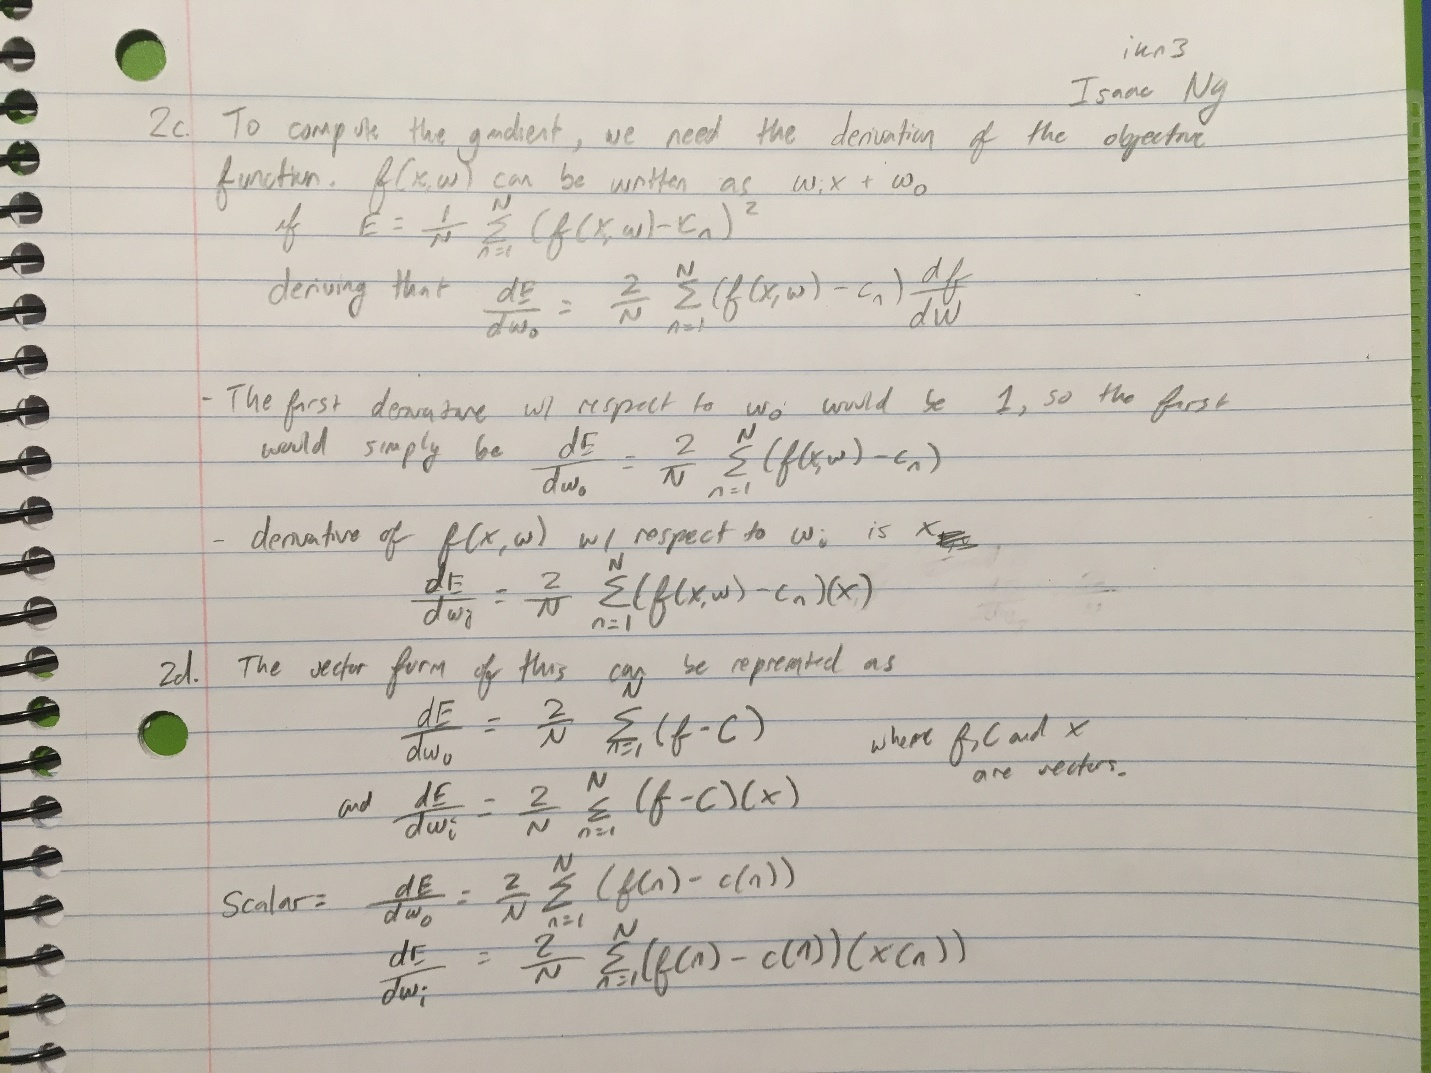 ikn3
Isaac Ng
2c. To compute the gradient, we need the derivation of the objective
function. f(x,w) can be written as wix + w₀
if E = 1/N Σ_{n=1}^{N} (f(x,w) - cₙ)²
deriving that dE/dw₀ = 2/N Σ_{n=1}^{N} (f(x,w) - cₙ) df/dw
- The first derivative w/ respect to w₀ would be 1, so the first
would simply be dE/dw₀ = 2/N Σ_{n=1}^{N} (f(x,w) - cₙ)
- derivative of f(x,w) w/ respect to wᵢ is x
dE/dwᵢ = 2/N Σ_{n=1}^{N} (f(x,w) - cₙ)(x)
2d. The vector form of this can be represented as
dE/dw₀ = 2/N Σ_{n=1}^{N} (f - C) where f, C and x
are vectors.
and dE/dwᵢ = 2/N Σ_{n=1}^{N} (f - C)(x)
Scalar = dE/dw₀ = 2/N Σ_{n=1}^{N} (f(n) - c(n))
dE/dwᵢ = 2/N Σ_{n=1}^{N} (f(n) - c(n))(x(n))